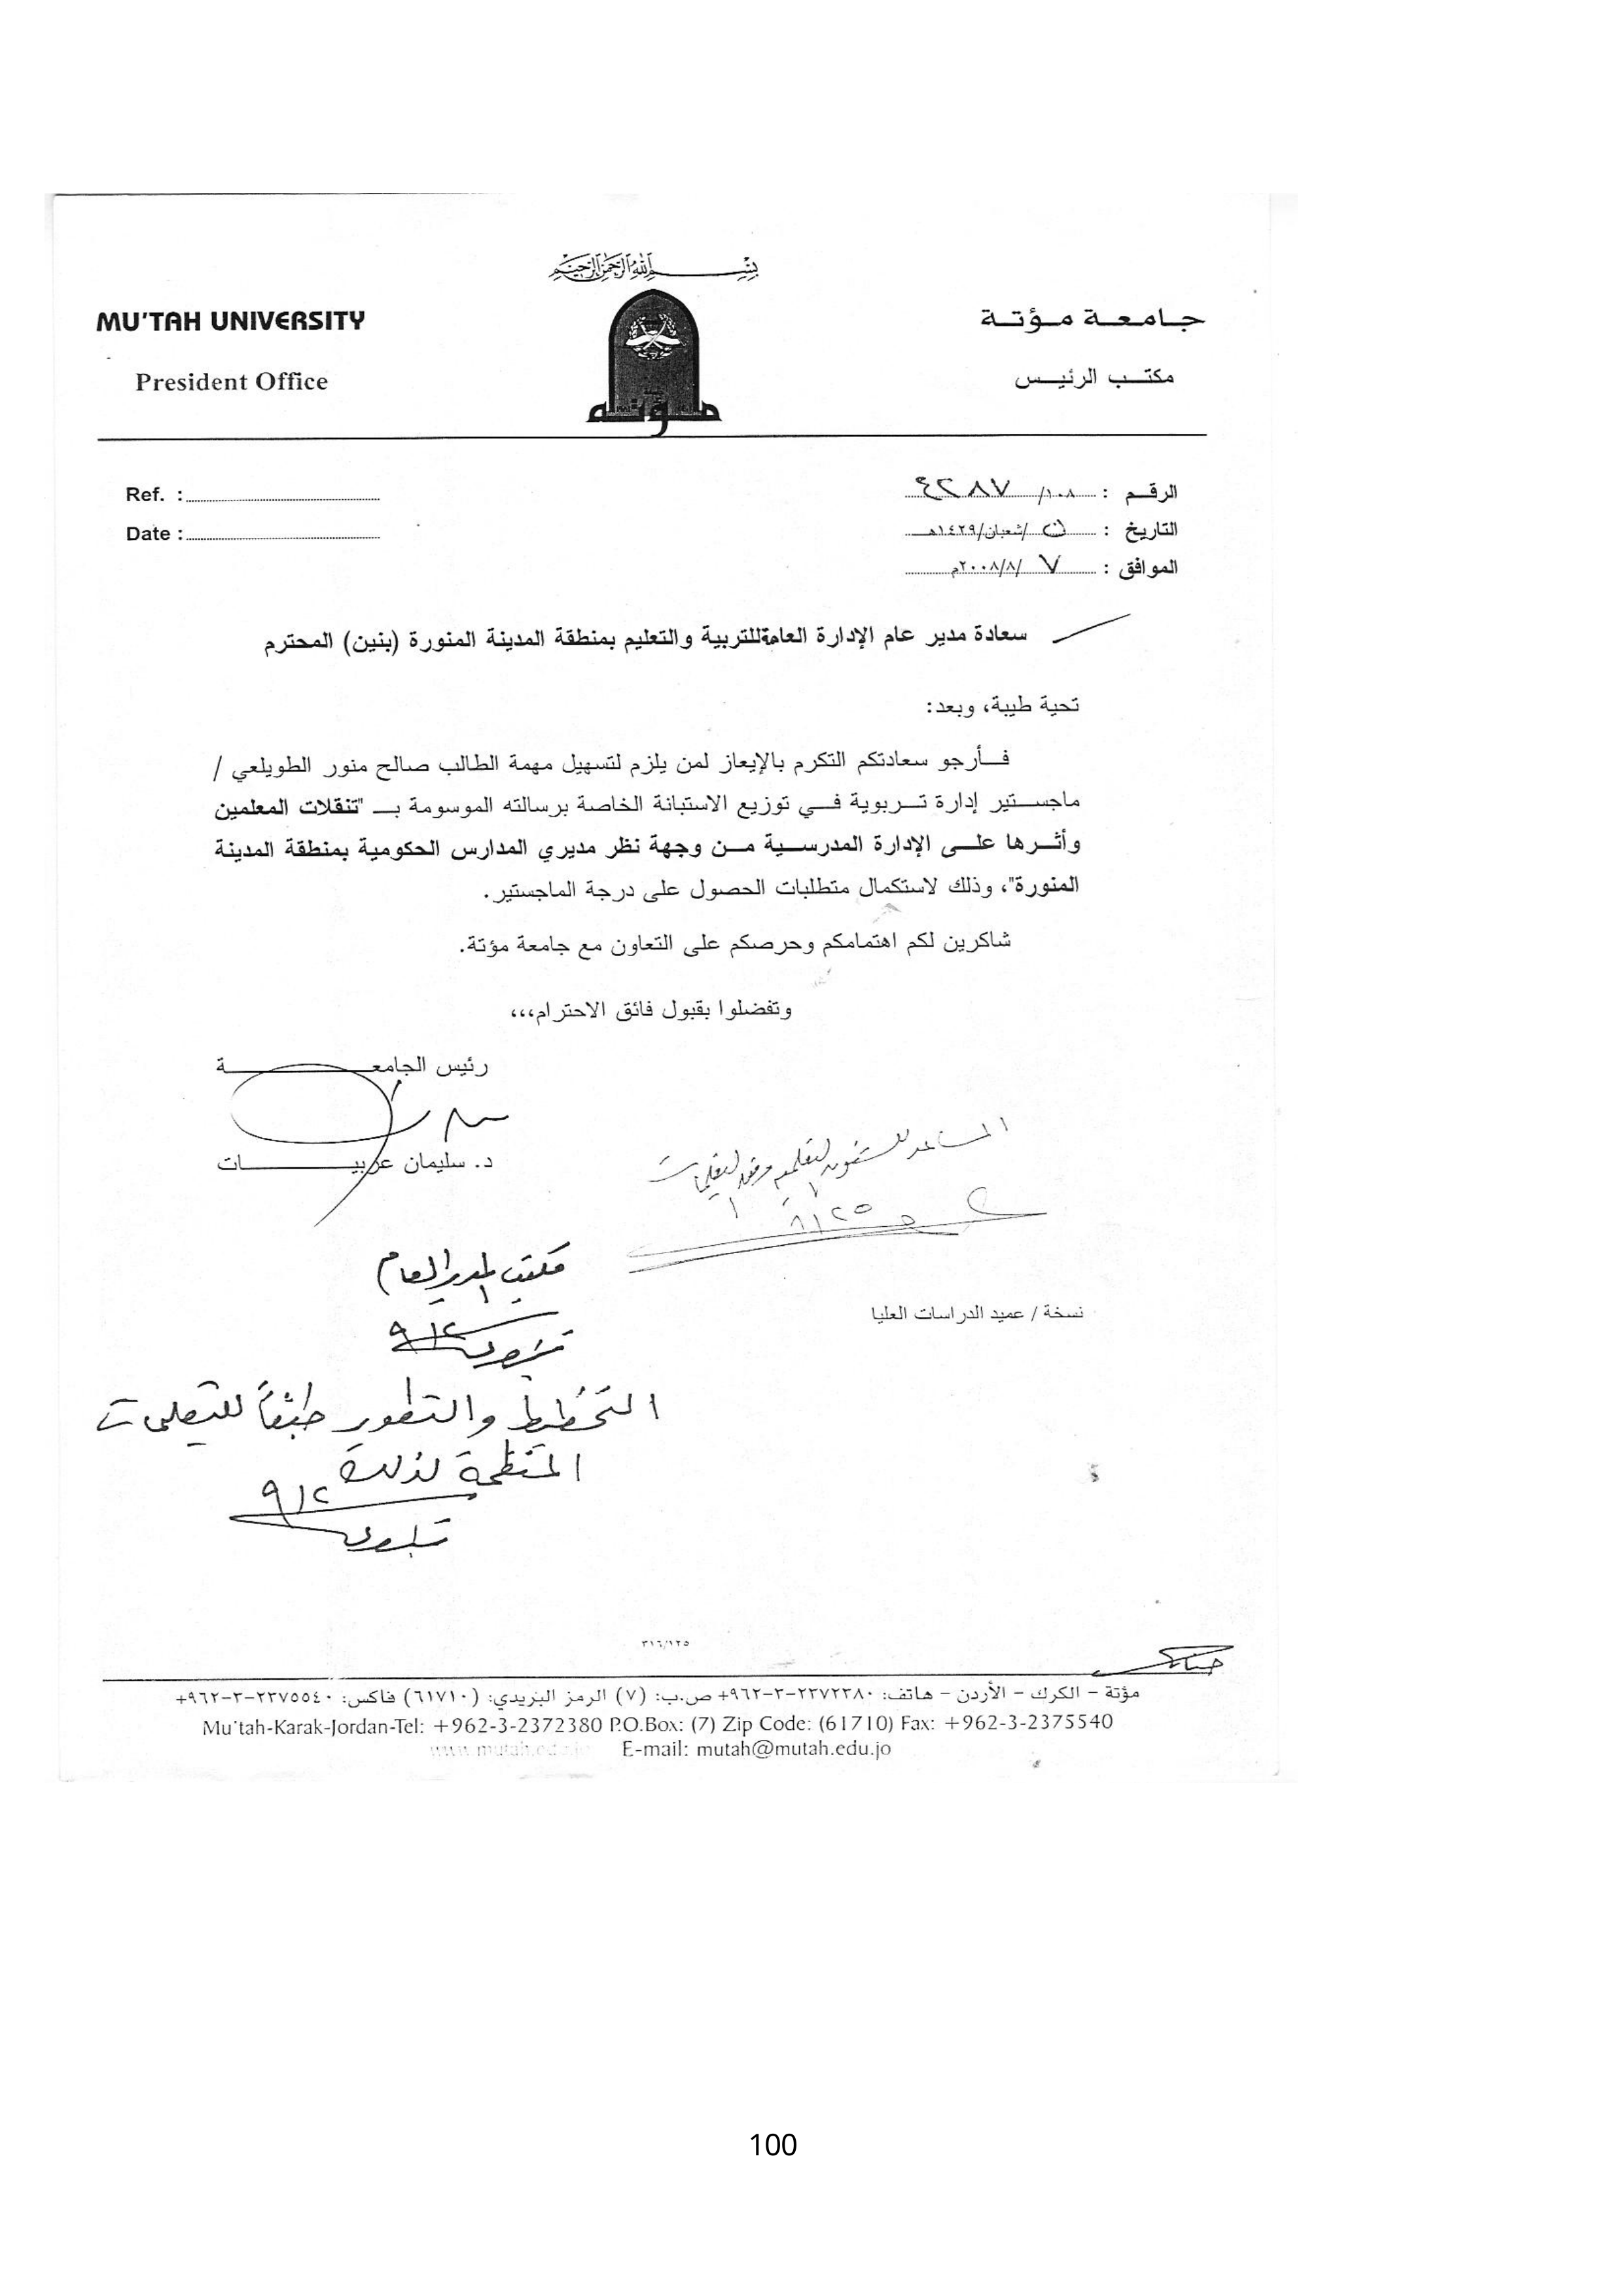 بسم الله الرحمن الرحيم
MU'TAH UNIVERSITY
جامعة مؤتة
President Office
مكتب الرئيس
مؤتة
Ref. :
الرقم : ١٠٨/ ٤٢٨٧
Date :
التاريخ : /شعبان/١٤٢٩هـ
الموافق : ٧ /٢٠٠٨/٨م
سعادة مدير عام الإدارة العامة للتربية والتعليم بمنطقة المدينة المنورة (بنين) المحترم
تحية طيبة، وبعد:
فأرجو سعادتكم التكرم بالإيعاز لمن يلزم لتسهيل مهمة الطالب صالح منور الطويلعي /
ماجستير إدارة تربوية في توزيع الاستبانة الخاصة برسالته الموسومة بـ "تنقلات المعلمين
وأثرها على الإدارة المدرسية من وجهة نظر مديري المدارس الحكومية بمنطقة المدينة
المنورة"، وذلك لاستكمال متطلبات الحصول على درجة الماجستير.
شاكرين لكم اهتمامكم وحرصكم على التعاون مع جامعة مؤتة.
وتفضلوا بقبول فائق الاحترام،،،
رئيس الجامعة
د. سليمان عربيات
المساعد للشئون التعليمية وفق التعليمات
٨/٢٥
مكتب المدير العام
٩/٢
نسخة / عميد الدراسات العليا
التخطيط والتطوير طبقاً للتعليمات
المنظمة لذلك
٩/٢
٣١٦/١٢٥
مؤتة - الكرك - الأردن - هاتف: ٢٣٧٢٣٨٠-٣-٩٦٢+ ص.ب: (٧) الرمز البريدي: (٦١٧١٠) فاكس: ٢٣٧٥٥٤٠-٣-٩٦٢+
Mu'tah-Karak-Jordan-Tel: +962-3-2372380 P.O.Box: (7) Zip Code: (61710) Fax: +962-3-2375540
E-mail: mutah@mutah.edu.jo
100